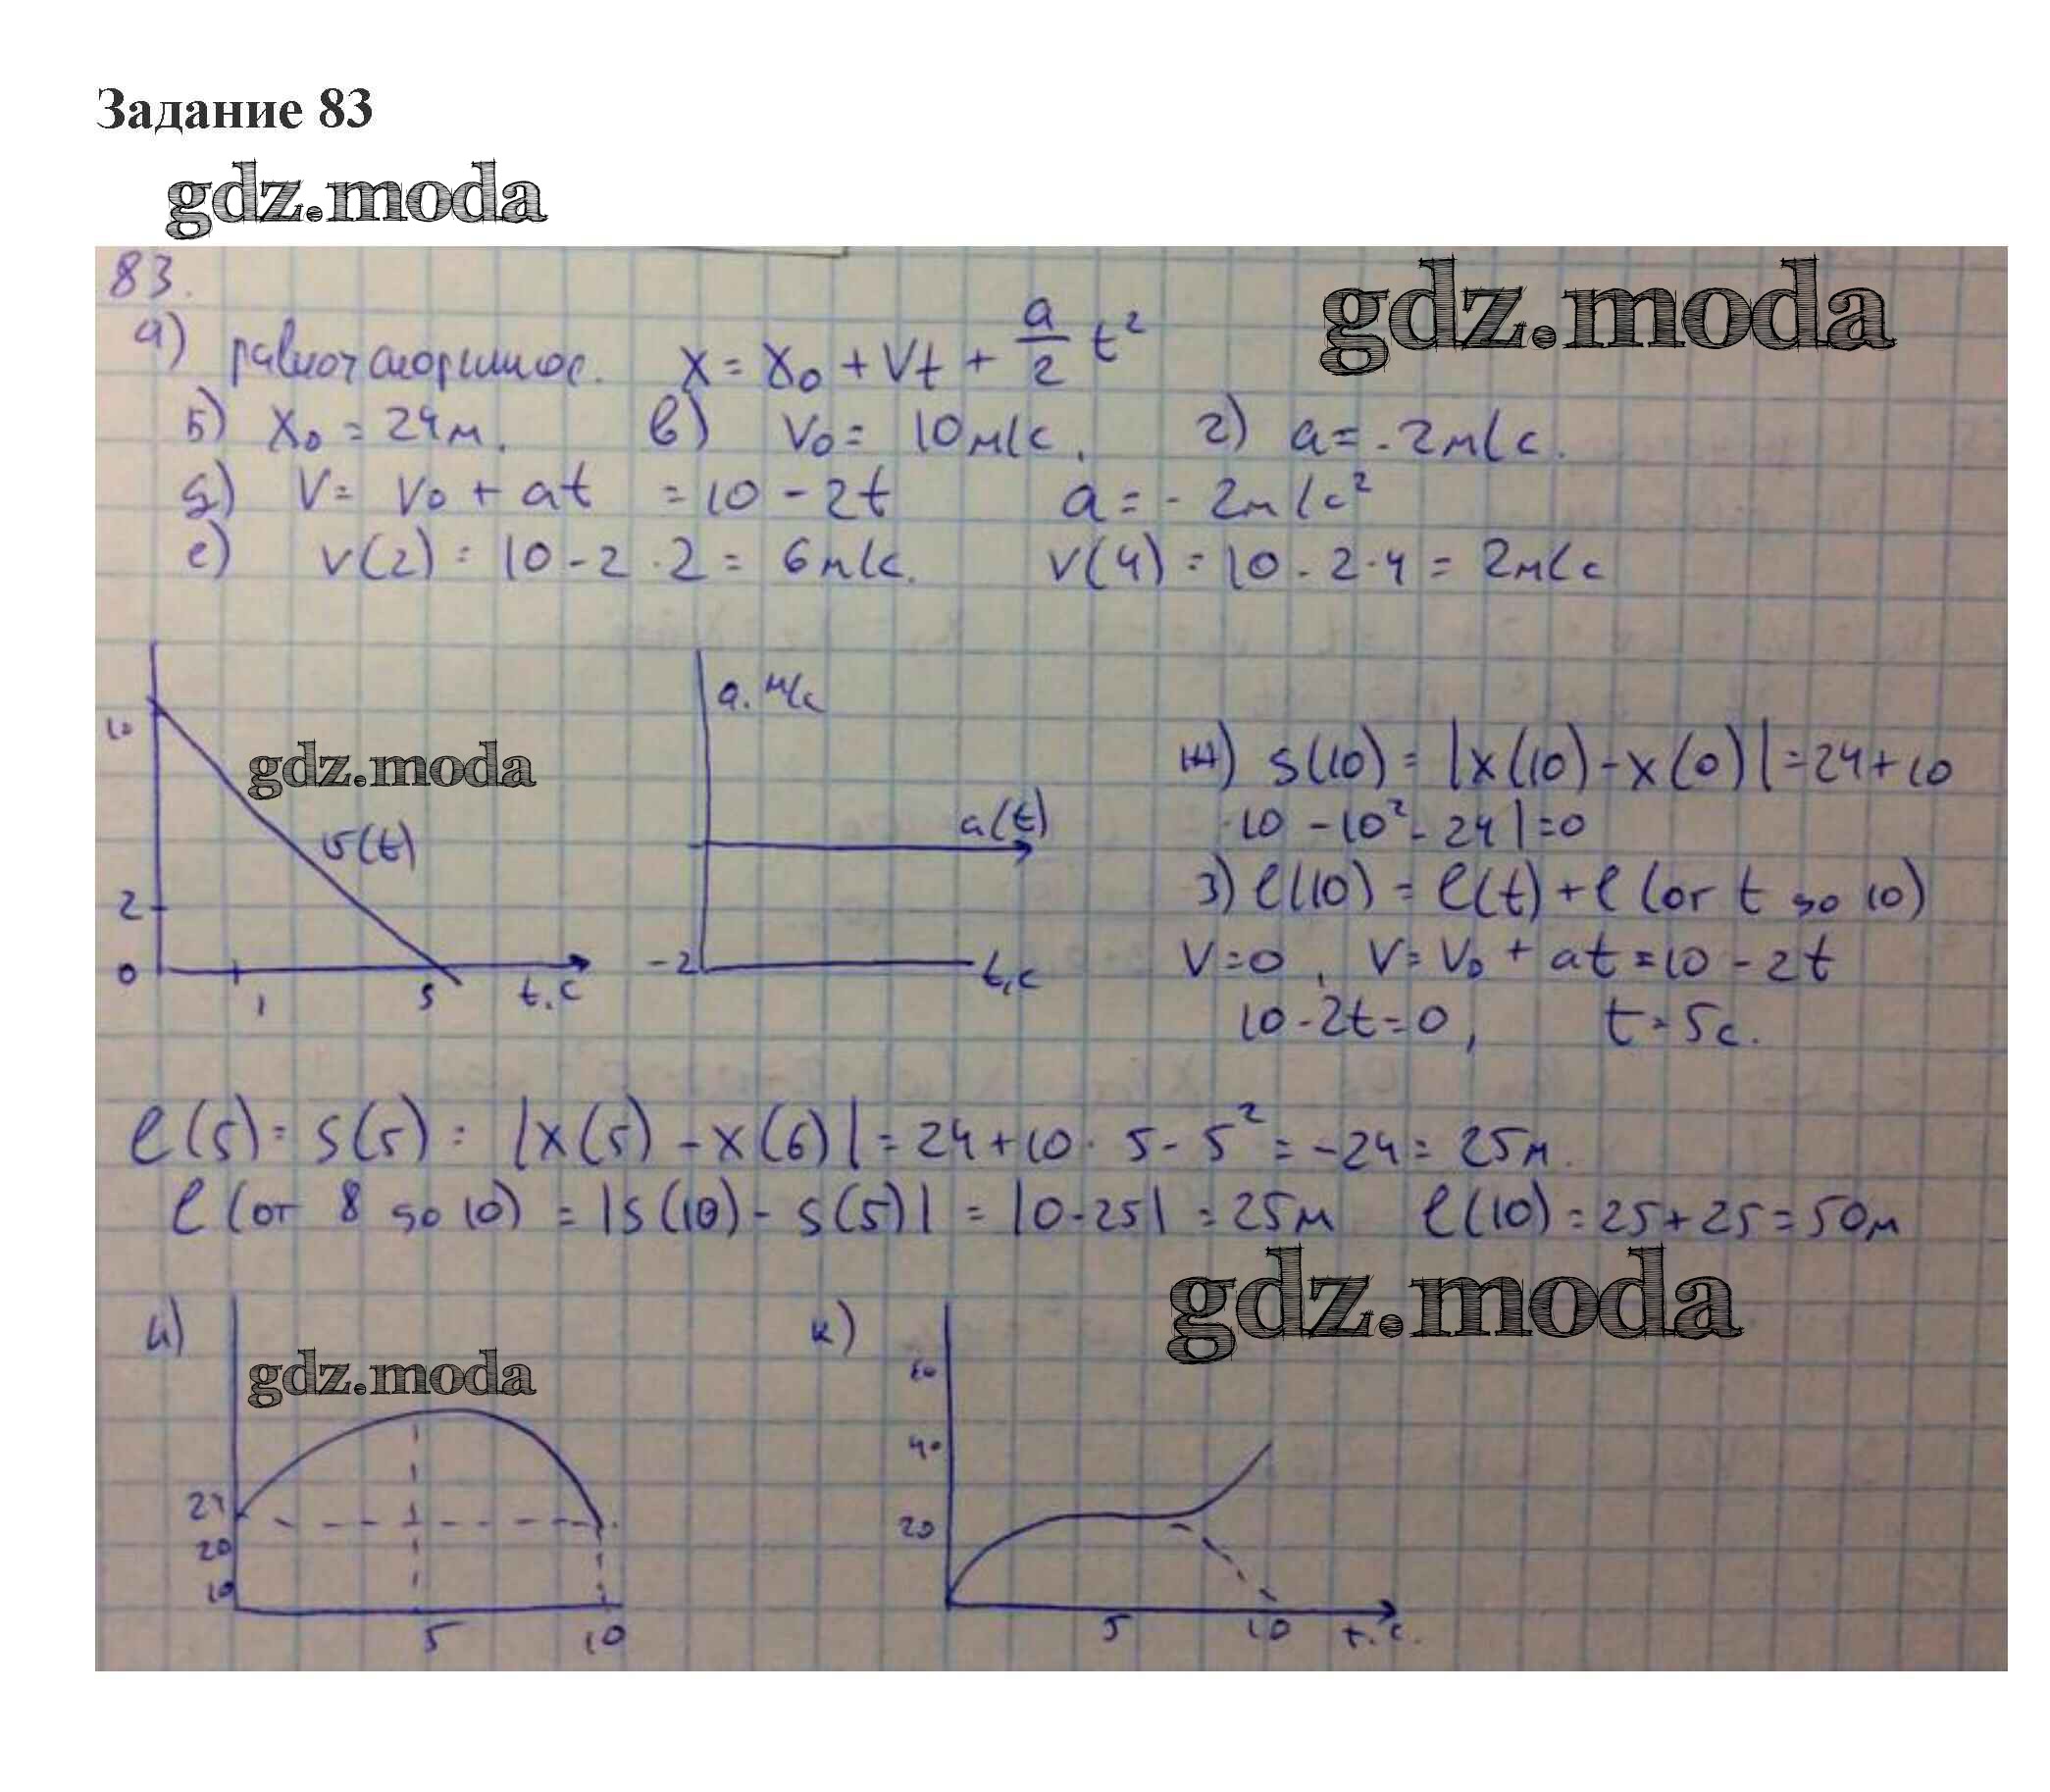 Задание 83
gdz.moda
gdz.moda
83.
а) x = x₀ + Vt + a/2 t²
б) x₀ = 24м. в) V₀ = 10м/с. г) a = -2м/с.
д) V = V₀ + at = 10 - 2t a = -2м/с²
е) v(2) = 10 - 2 · 2 = 6м/с. v(4) = 10 - 2·4 = 2м/с
10
2
0
1
5
t.c
υ(t)
gdz.moda
a. м/с
a(t)
-2
t,c
ж) s(10) = |x(10) - x(0)| = 24 + 10
·10 - 10² - 24| = 0
з) l(10) = l(t) + l (от t до 10)
V=0, V = V₀ + at = 10 - 2t
10 - 2t = 0, t = 5c.
l(5) = s(5) = |x(5) - x(6)| = 24 + 10 · 5 - 5² = -24 = 25м.
l (от 8 до 10) = |s(10) - s(5)| = |0-25| = 25м l(10) = 25 + 25 = 50м
gdz.moda
и)
gdz.moda
24
20
10
5
10
к)
60
40
20
5
10
t.c.